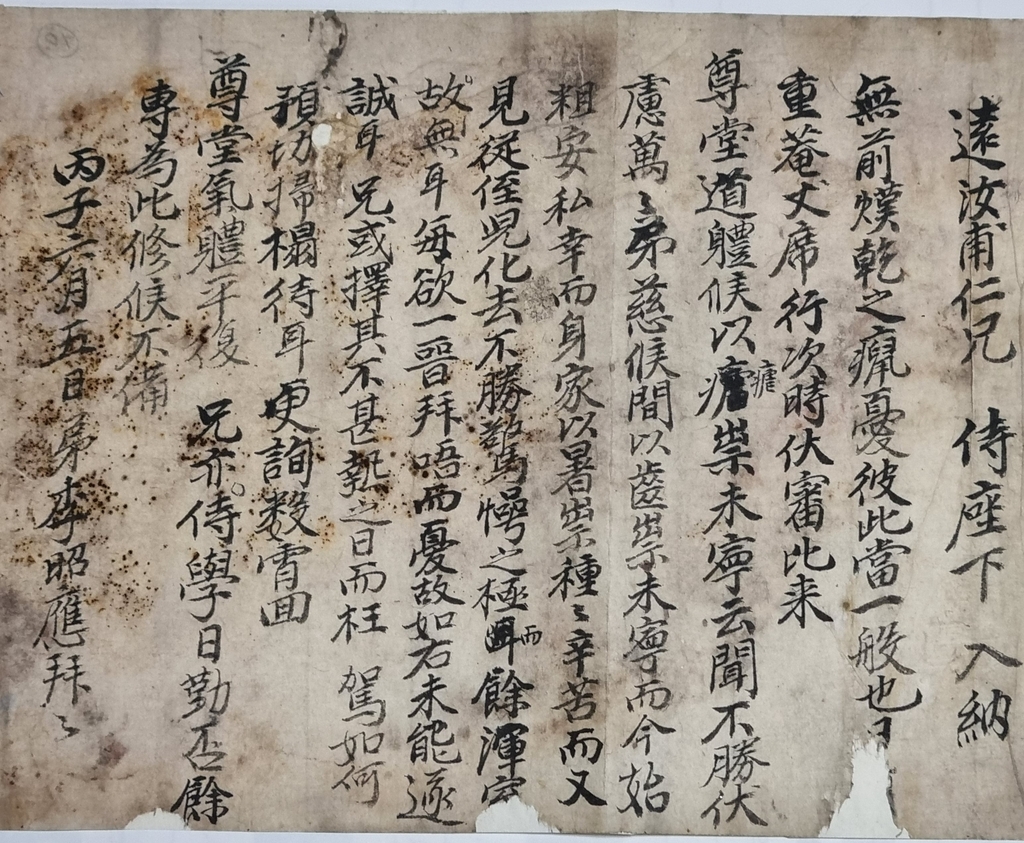 遠汝甫仁兄 侍座下 入納
無前熯乾之痾憂彼此當一般也日
重菴丈席行次時伏審比来
尊堂道軆候以瘧祟未寧云聞不勝伏
慮萬〻弟慈候間以齒祟未寧而今始
粗安私幸而身家以暑祟種〻辛苦而又
見從侄児化去不勝驚愕之極而餘渾家
故無耳每欲一晋拜唔而憂故如右未能遂
誠耳 兄或擇其不甚熱之日而枉 駕如何
預切掃榻待耳更詢數宵回
尊堂氣軆平復 兄亦侍學日勤否餘
專為此修候不備
丙子六月五日弟李昭應拜〻